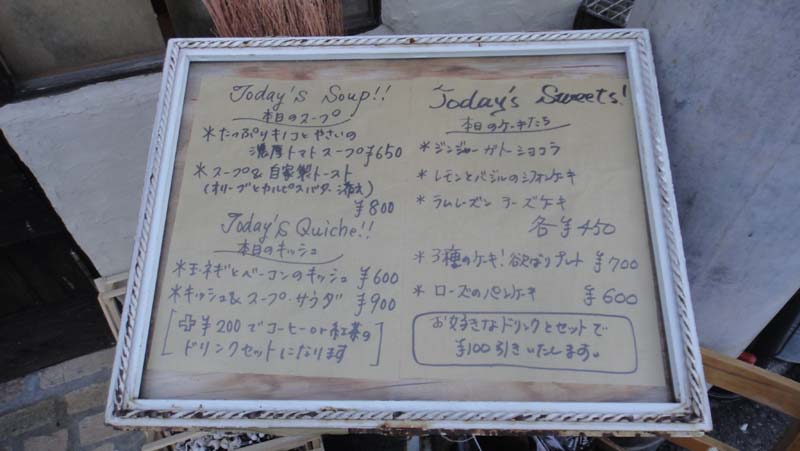 Today's Soup!!
本日のスープ
*たっぷりキノコとやさいの
濃厚トマトスープ¥650
*スープ&自家製トースト
(オリーブとカルピスバター添え)
¥800
Today's Quiche!!
本日のキッシュ
*玉ネギとベーコンのキッシュ ¥600
*キッシュ&スープ・サラダ ¥900
[+¥200でコーヒーor紅茶の
ドリンクセットになります]
Today's Sweets!
本日のケーキたち
*ジンジャーガトーショコラ
*レモンとバジルのシフォンケーキ
*ラムレーズンチーズケーキ
各¥450
*3種のケーキ!欲ばりプレート ¥700
*ローズのパンケーキ ¥600
お好きなドリンクとセットで
¥100引きいたします。